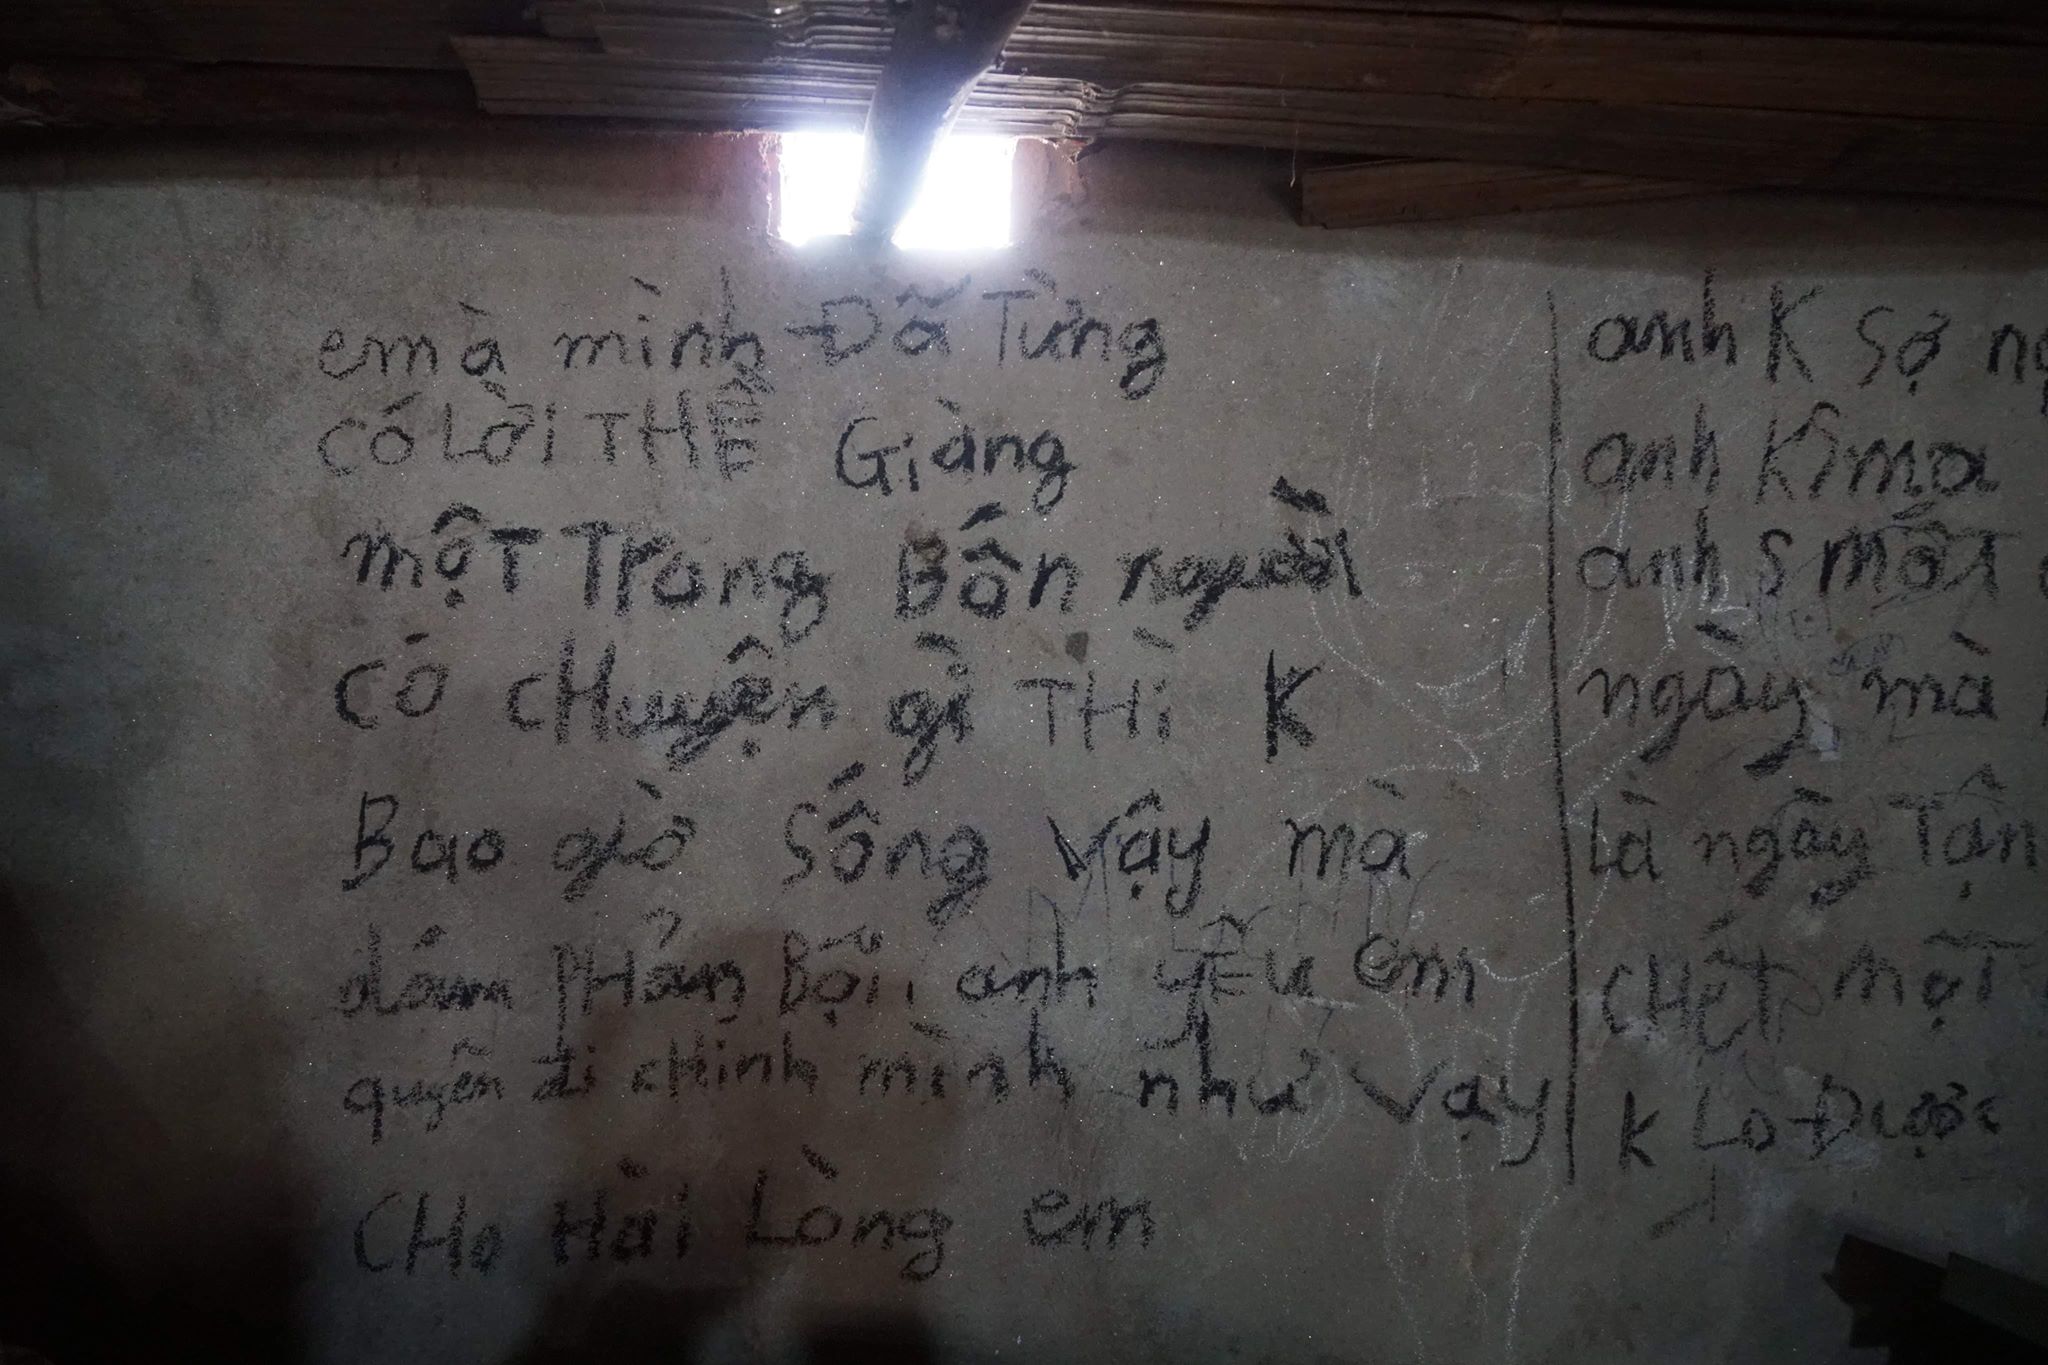 em à mình Đã Từng
có LỜi THỀ Giàng
mộT Trong Bốn người
có cHuyện gì THì K
Bao giờ Sống vậy mà
dám PHản Bội, anh yÊu em
quyền đi cHính mình như vậy
CHo Hài Lòng em
anh K Sợ
anh K ma
anh S mấT
ngày mà
Là ngày Tận
cHếT mộT
K Lo Được